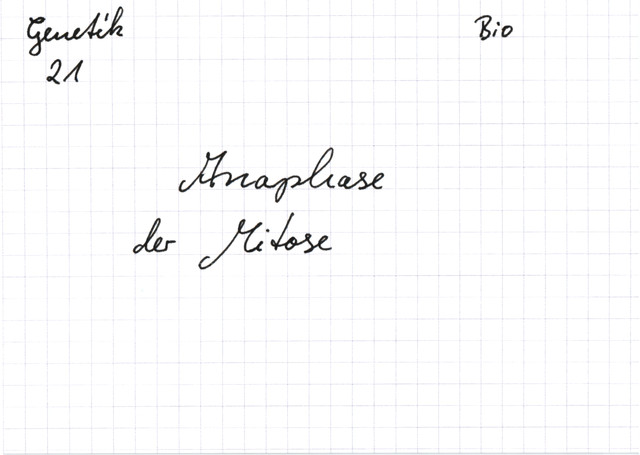 Genetik
Bio
21
Anaphase
der Mitose